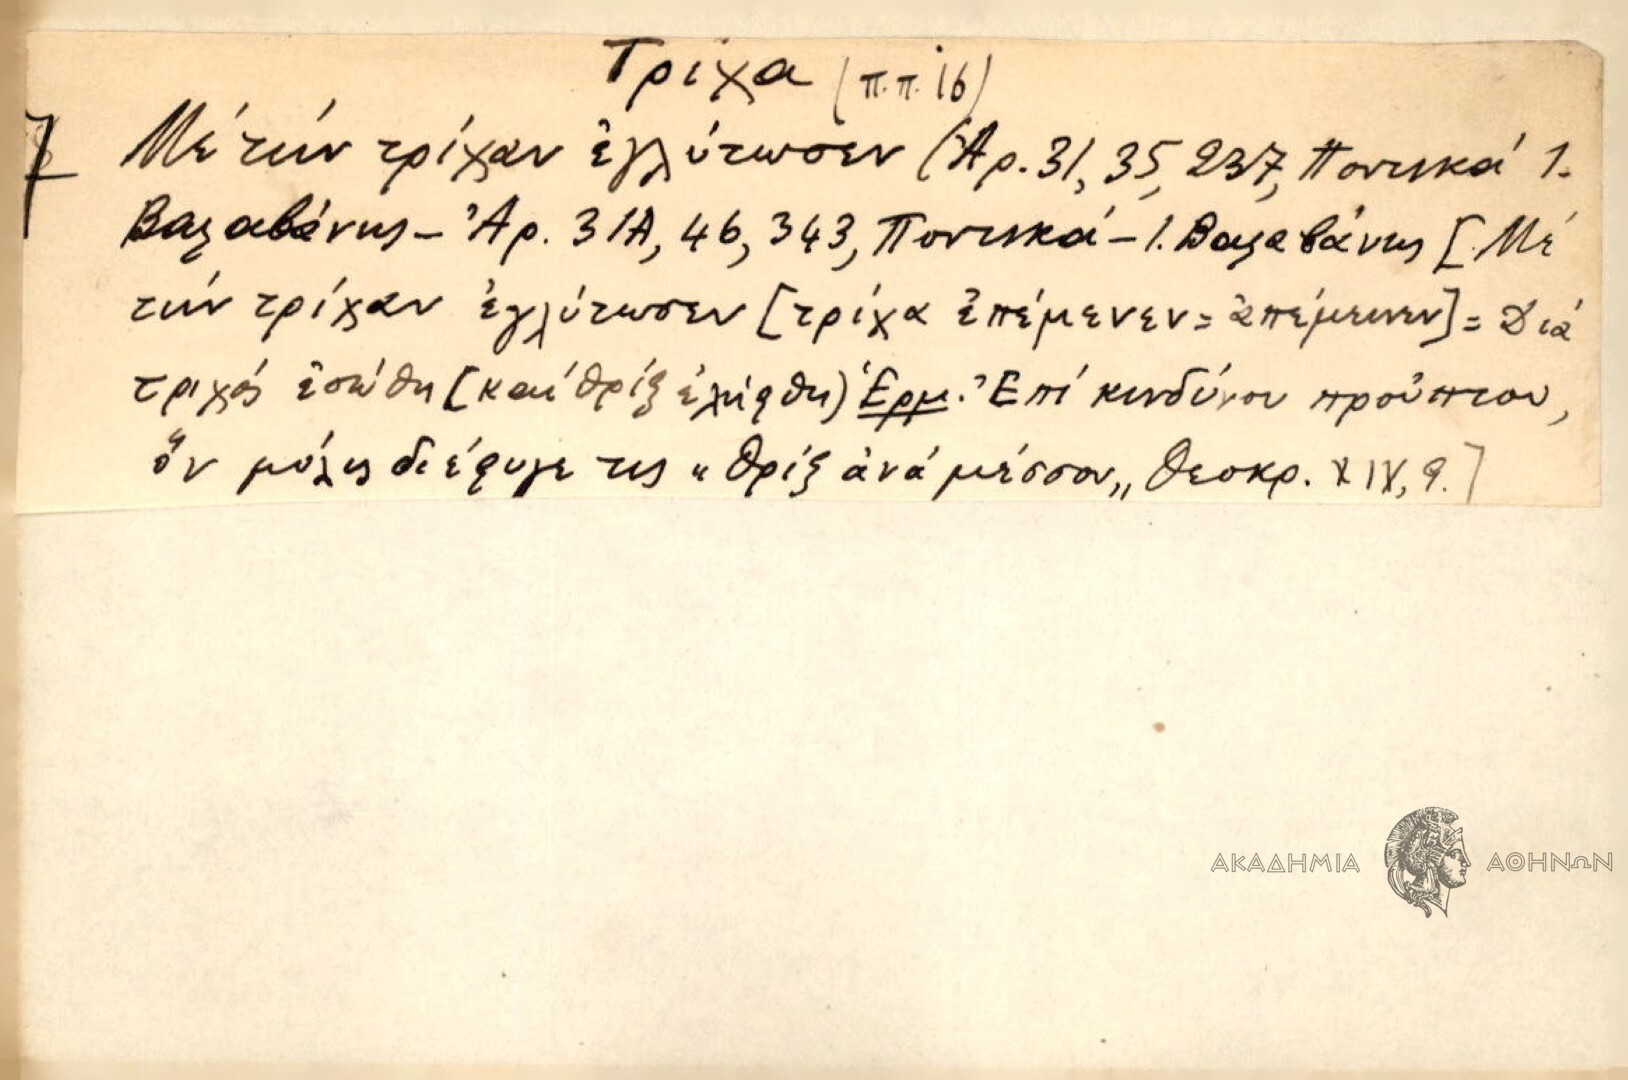 Τρίχα (π.π. 16)
7 Μέ τήν τρίχαν ἐγλύτωσεν (Ἀρ. 31, 35, 237, Ποντικά Ι.
Βαλαβάνης – Ἀρ. 31Α, 46, 343, Ποντικά – Ι. Βαλαβάνης [Μέ
τήν τρίχαν ἐγλύτωσεν [τρίχα ἐπέμενεν = ἀπέμεινεν] = Διά
τριχός ἐσώθη [καί θρίξ ἐλήφθη) Ἑρμ. Ἐπί κινδύνου προὔπτου,
ὅν μόλις διέφυγε τις „ θρίξ ἀνά μέσσον„ Θεοκρ. XIV, 9.]
ΑΚΑΔΗΜΙΑ ΑΘΗΝΩΝ